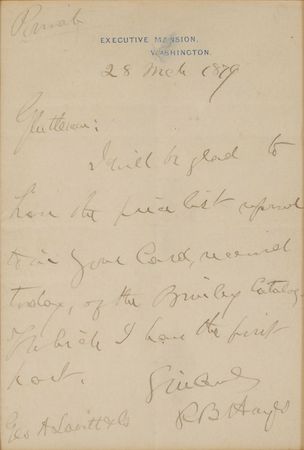 Private
EXECUTIVE MANSION,
WASHINGTON.
28 Mch 1879
Gentlemen:
I will be glad to
have the price list referred
to in your Card, received
today, of the Brinley Catalog
of which I have the first
part.
Sincerely
R B Hayes
Geo A Leavitt & Co